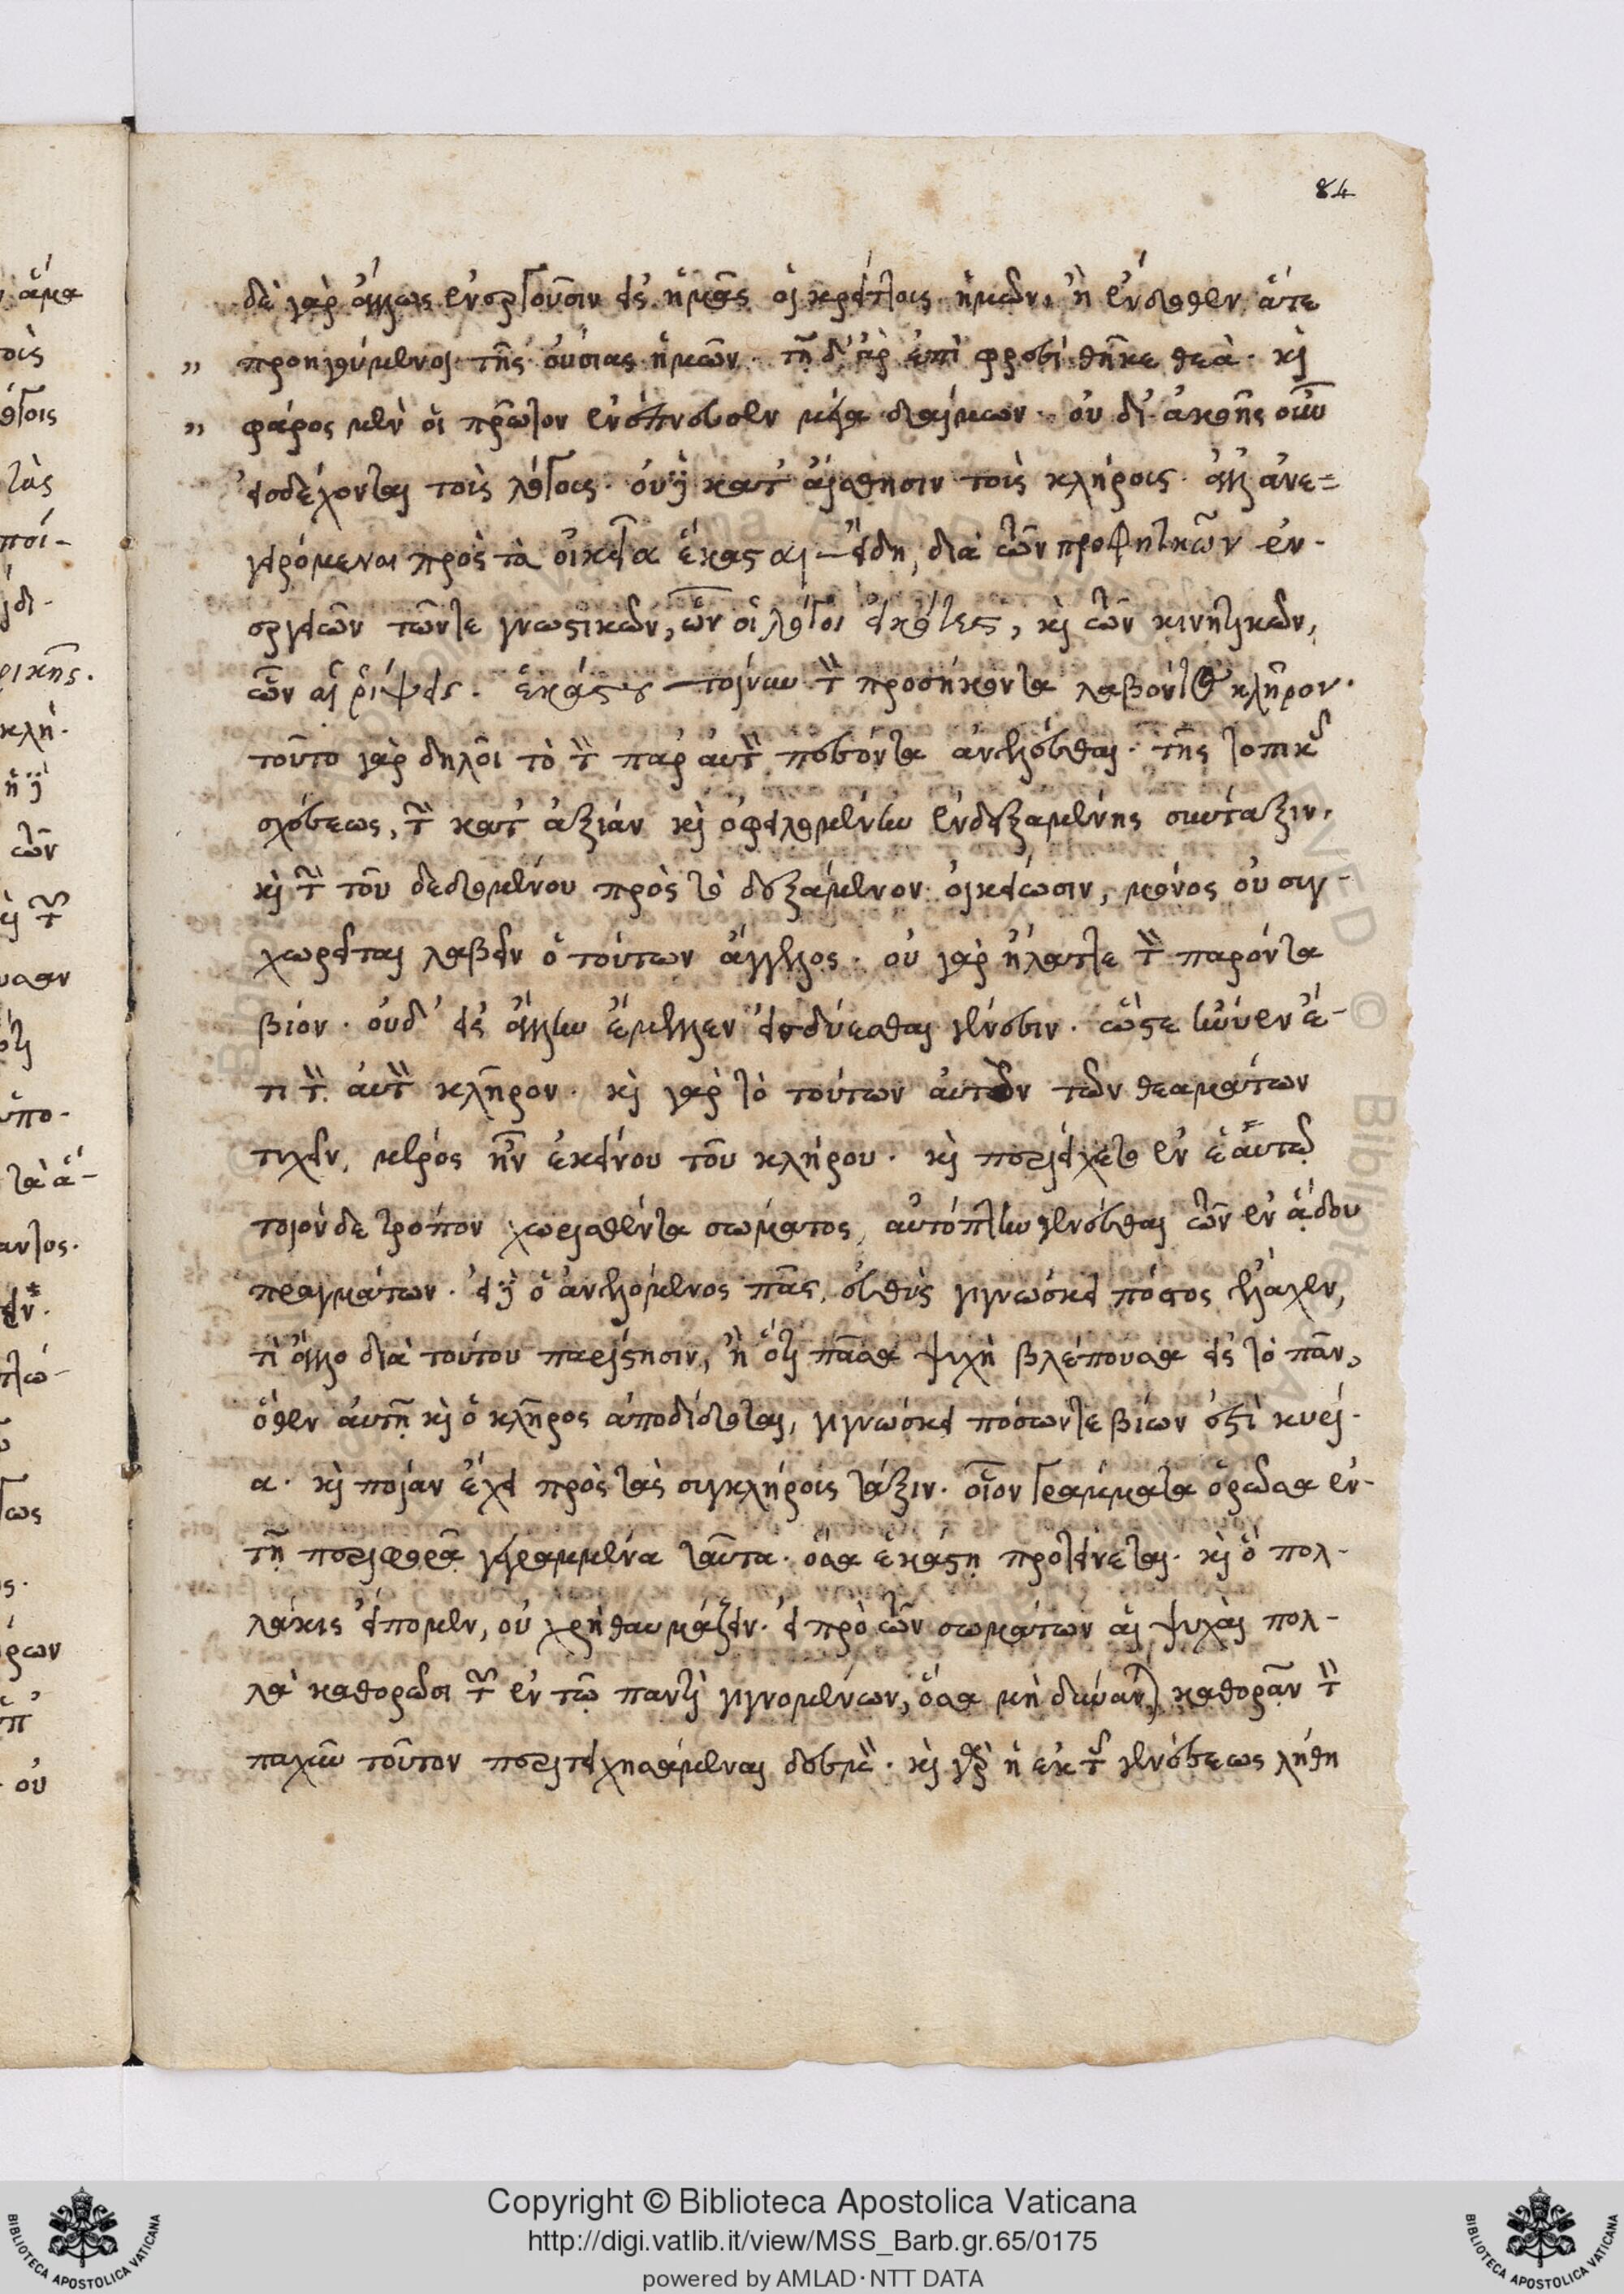 84
δὲ γὰρ ἄλλως ἐνεργοῦσιν εἰς ἡμᾶς οἱ κρείττοις ἡμῶν, ἢ ἔνδοθεν ἅτε
„ προηγούμενοι τῆς οὐσίας ἡμῶν. τῇ δ' ἄρ ἐπὶ φρεσὶ θῆκε θεὰ. κὶ
„ φάρος μὲν οἱ πρῶτον ἐνέπνευσεν μέγα δαίμων. οὐ δι' ἀκοῆς οὖν
εἰσδέχονται τοῖς λόγοις. οὐδὲ κατ' αἴσθησιν τοῖς κλήροις. ἀλλ' ἀνε=
γειρόμεναι πρὸς τὰ οἰκεῖα ἕκασται εἴδη, διὰ τῶν προθητικῶν ἐν-
εργειῶν τῶντε γνωστικῶν, ὧν οἱ λόγοι εἰκότες, κὶ τῶν κινητικῶν,
ὧν αἱ ῥίψεις. ἑκάστου τοίνυν τὸν προσήκοντα λαβόντος κλῆρον.
τοῦτο γὰρ δηλοῖ τὸ τὸν παρ' αὐτὸν πεσόντα ἀνελέσθαι. τῆς τοπικῆς
σχέσεως, τὴν κατ' ἀξίαν κὶ ὀφειλομένην ἐνδειξαμένης σύνταξιν,
κὶ τὴν τοῦ δεδομένου πρὸς τὸ δεξάμενον οἰκείωσιν, μόνος οὐ συγ-
χωρεῖται λαβεῖν ὁ τούτων ἄγγελος. οὐ γὰρ ἤλαττε τὸν παρόντα
βίον. οὐδ' εἰς ἄλλην ἔμελλεν εἰσδύεσθαι γένεσιν. ὥστε ἔ-
τι τὸν αὐτὸν κλῆρον. κὶ γὰρ τὸ τούτων αὐτῶν τῶν θεαμάτων
τυχεῖν, μέρος ἦν ἐκείνου τοῦ κλήρου. κὶ περιείχετο ἐν ἑαυτῷ
τοιόνδε τρόπον χωρισθέντα σώματος, αὐτόπτην γενέσθαι τῶν ἐν ἅδου
πραγμάτων. εἰ δὲ ὁ ἀνελόμενος πᾶς, εὐθὺς γιγνώσκει πόστος εἴληχεν,
τί ἄλλο διὰ τούτου παρίστησιν, ἢ ὅτι πᾶσα ψυχὴ βλέπουσα εἰς τὸ πᾶν,
ὅθεν αὐτῇ κὶ ὁ κλῆρος ἀποδίδοται, γιγνώσκει πόσωντε βίων ἐστὶ κυρί-
α. κὶ ποίαν ἔχει πρὸς τὰς συγκλήροις τάξιν. οἷον γράμματα ὁρῶσα ἐν-
τῇ περιφορᾷ γεγραμμένα ταῦτα. ὅσα ἑκάστῃ προτείνεται. κὶ ὃ πολ-
λάκις εἴπομεν, οὐ χρὴ θαυμάζειν. εἰ πρὸ τῶν σωμάτων αἱ ψυχαὶ πολ-
λὰ καθορῶσι τῶν ἐν τῷ παντὶ γιγνομένων, ὅσα μὴ δύνανται καθορᾶν τὸν
παχὺν τοῦτον περιτειχησάμεναι δεσμὸν. κὶ γὰρ ἡ ἐκ τῆς γενέσεως λήθη
Copyright © Biblioteca Apostolica Vaticana
http://digi.vatlib.it/view/MSS_Barb.gr.65/0175
powered by AMLAD·NTT DATA